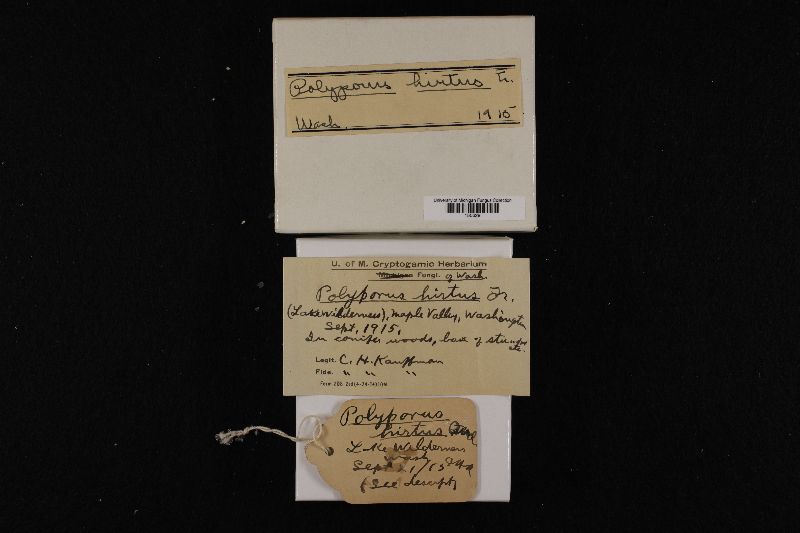 Polyporus hirtus Fr.
Wash. 1915
University of Michigan Fungus Collection
U. of M. Cryptogamic Herbarium
Michigan Fungi. of Wash.
Polyporus hirtus Fr.
(Lake Wilderness), Maple Valley, Washington
Sept, 1915,
In conifer woods, base of stumps
etc.
Legit. C. H. Kauffman
Fide. " " "
Polyporus
hirtus
Lake Wilderness
Wash
Sept /15
(See descript)